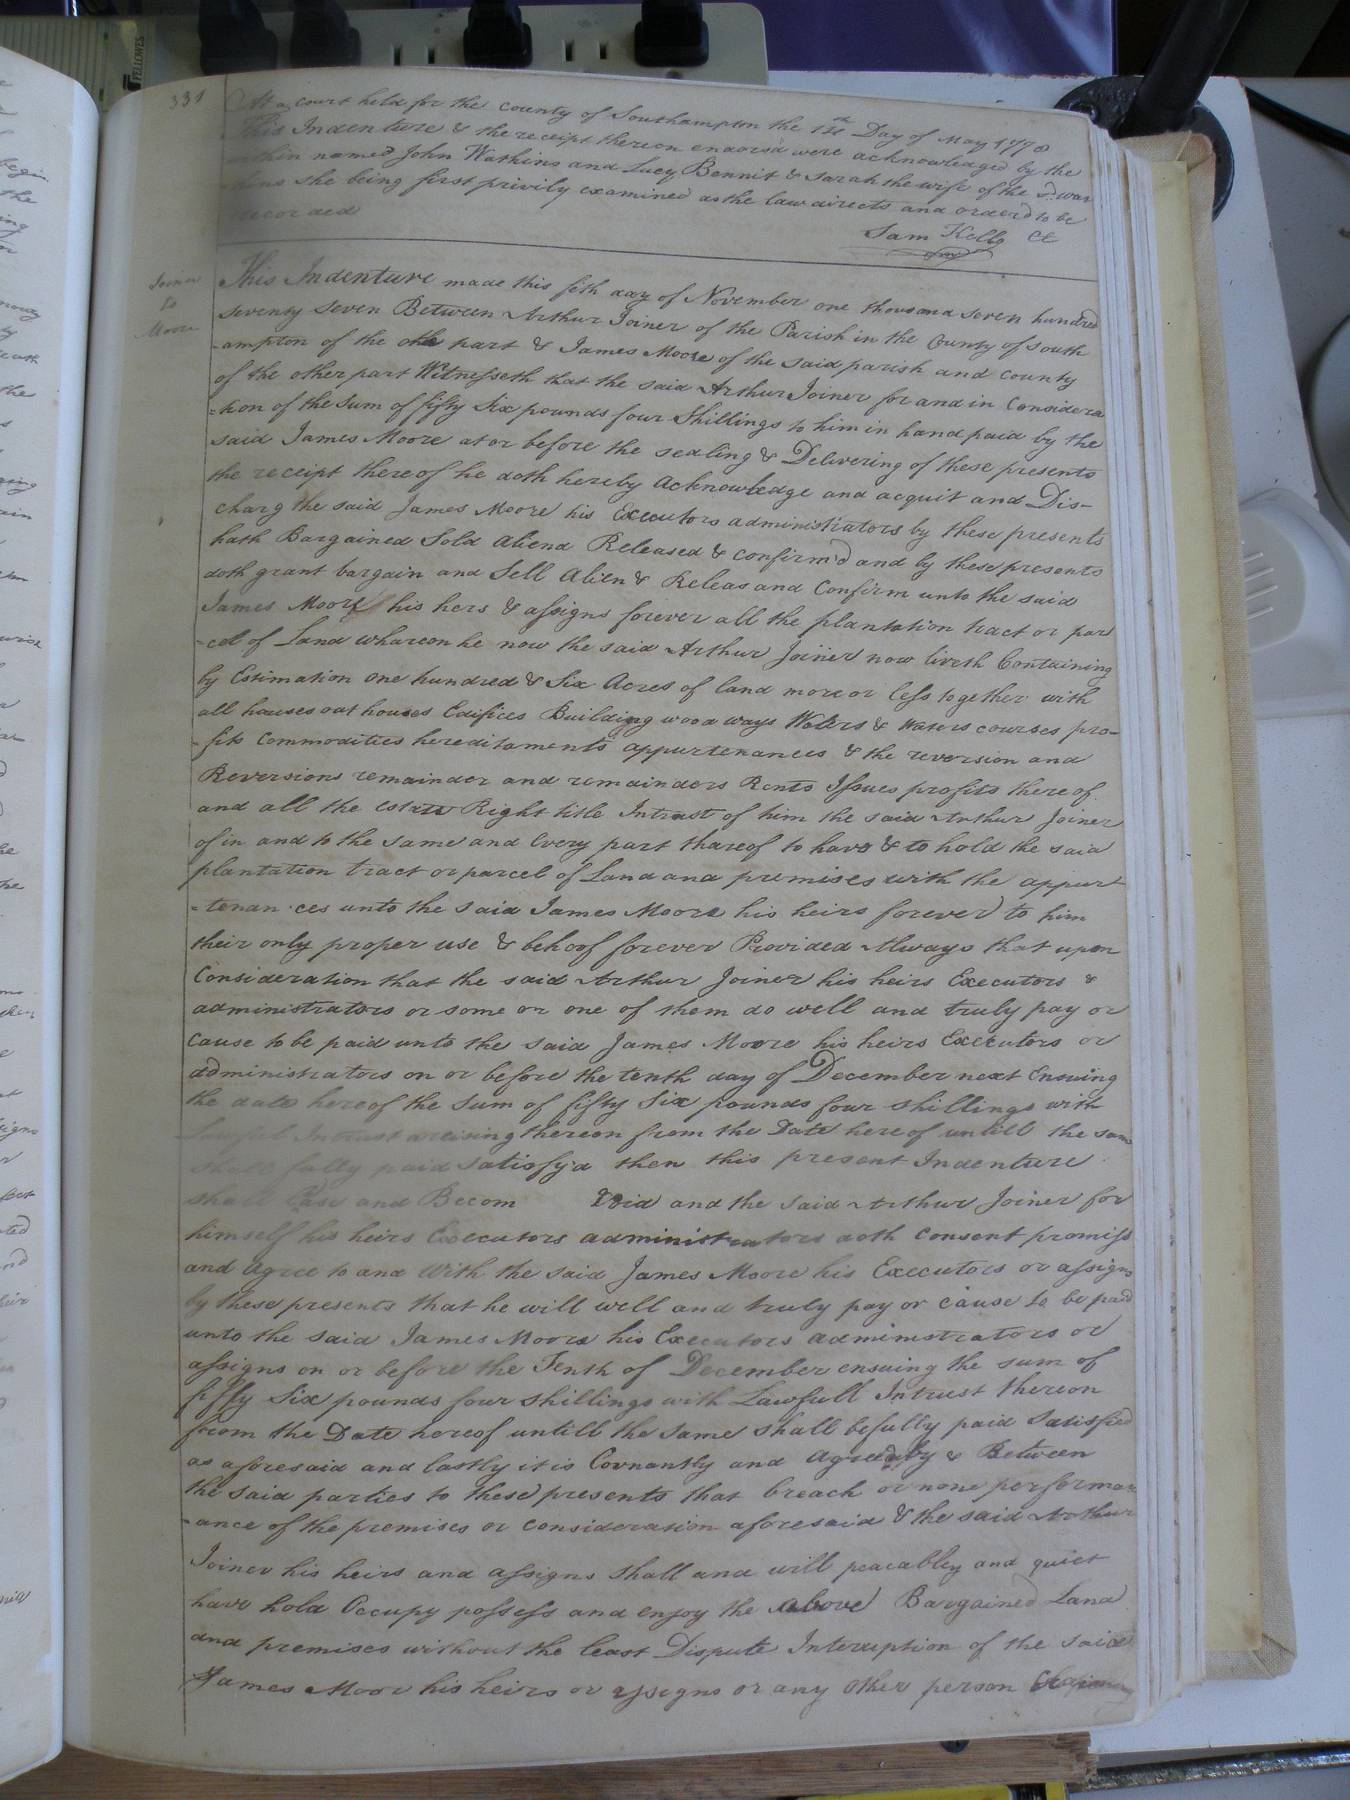 FELLOWES
331
At a court held for the county of Southampton the 14th Day of May 1778
This Indenture & the receipt thereon endorsd were acknowledged by the
within named John Watkins and Lucy Bennit & Sarah the wife of the sd. Wat
kins she being first privily examined as the law directs and orderd to be
recorded
Sam Kello Ct
Joiner
to
Moore
This Indenture made this day of November one thousand seven hundred
seventy seven Between Arthur Joiner of the Parish in the County of South
-ampton of the one part & James Moore of the said parish and county
of the other part Witnesseth that the said Arthur Joiner for and in Considera
=tion of the Sum of fifty Six pounds four Shillings to him in hand paid by the
said James Moore at or before the sealing & Delivering of these presents
the receipt thereof he doth hereby acknowledge and acquit and Dis-
charg the said James Moore his Executors administrators by these presents
hath Bargained Sold aliend Released & confirm'd and by these presents
doth grant bargain and Sell Alien & Releas and Confirm unto the said
James Moore his hers & assigns forever all the plantation tract or par
-cel of Land whareon he now the said Arthur Joiner now liveth Containing
by Estimation one hundred & Six Acres of land more or less together with
all houses out houses Edifices Building wood ways Waters & waters courses pro-
-fits Commodities hereditaments appurtenances & the reversion and
Reversions remainder and remainders Rents Issues profits thereof
and all the estate Right title Intrust of him the said Arthur Joiner
of in and to the same and Every part thareof to have & to hold the said
plantation tract or parcel of Land and premises with the appurt
=tenan ces unto the said James Moore his heirs forever to him
their only proper use & behoof forever Provided Always that upon
Consideration that the said Arthur Joiner his heirs Executors &
administrators or some or one of them do well and truly pay or
cause to be paid unto the said James Moore his heirs Executors or
administrators on or before the tenth day of December next Ensuing
the date hereof the sum of fifty Six pounds four shillings with
Lawful Intrust areising thereon from the Date hereof untill the same
shall fully paid satisfy'd then this present Indenture
shall Case and Becom Void and the said Arthur Joiner for
himself his heirs Executors administrators doth Consent promiss
and agree to and With the said James Moore his Executors or assigns
by these presents that he will well and truly pay or cause to be paid
unto the said James Moore his Executors administrators or
assigns on or before the Tenth of December ensuing the sum of
fifty Six pounds four shillings with Lawfull Intrust thereon
from the Date hereof untill the same shall be fully paid Satisfied
as aforesaid and lastly it is Covnantly and agreed by & Between
the said parties to these presents that breach or none performan
-ance of the premises or consideration aforesaid & the said Arthur
Joiner his heirs and assigns shall and will peacabley and quiet
have hold Occupy possess and enjoy the above Bargained Land
and premises without the least Dispute Interruption of the said
James Moor his heirs or assigns or any other person Claiming